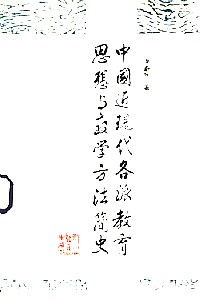 中國近現代各派教育
思想与教学方法简史